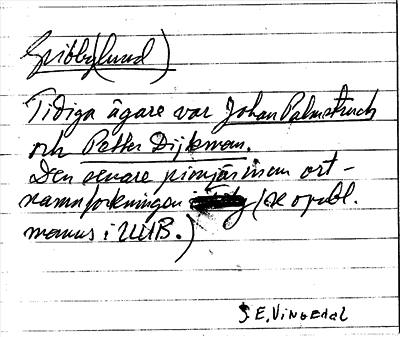 Gribby(lund)
Tidiga ägare var Johan Palmstruch
och Petter Dijkman.
Den senare pionjär inom ort-
namnforskningen (se opubl.
manus i UUB.)
S.E. Vingedal